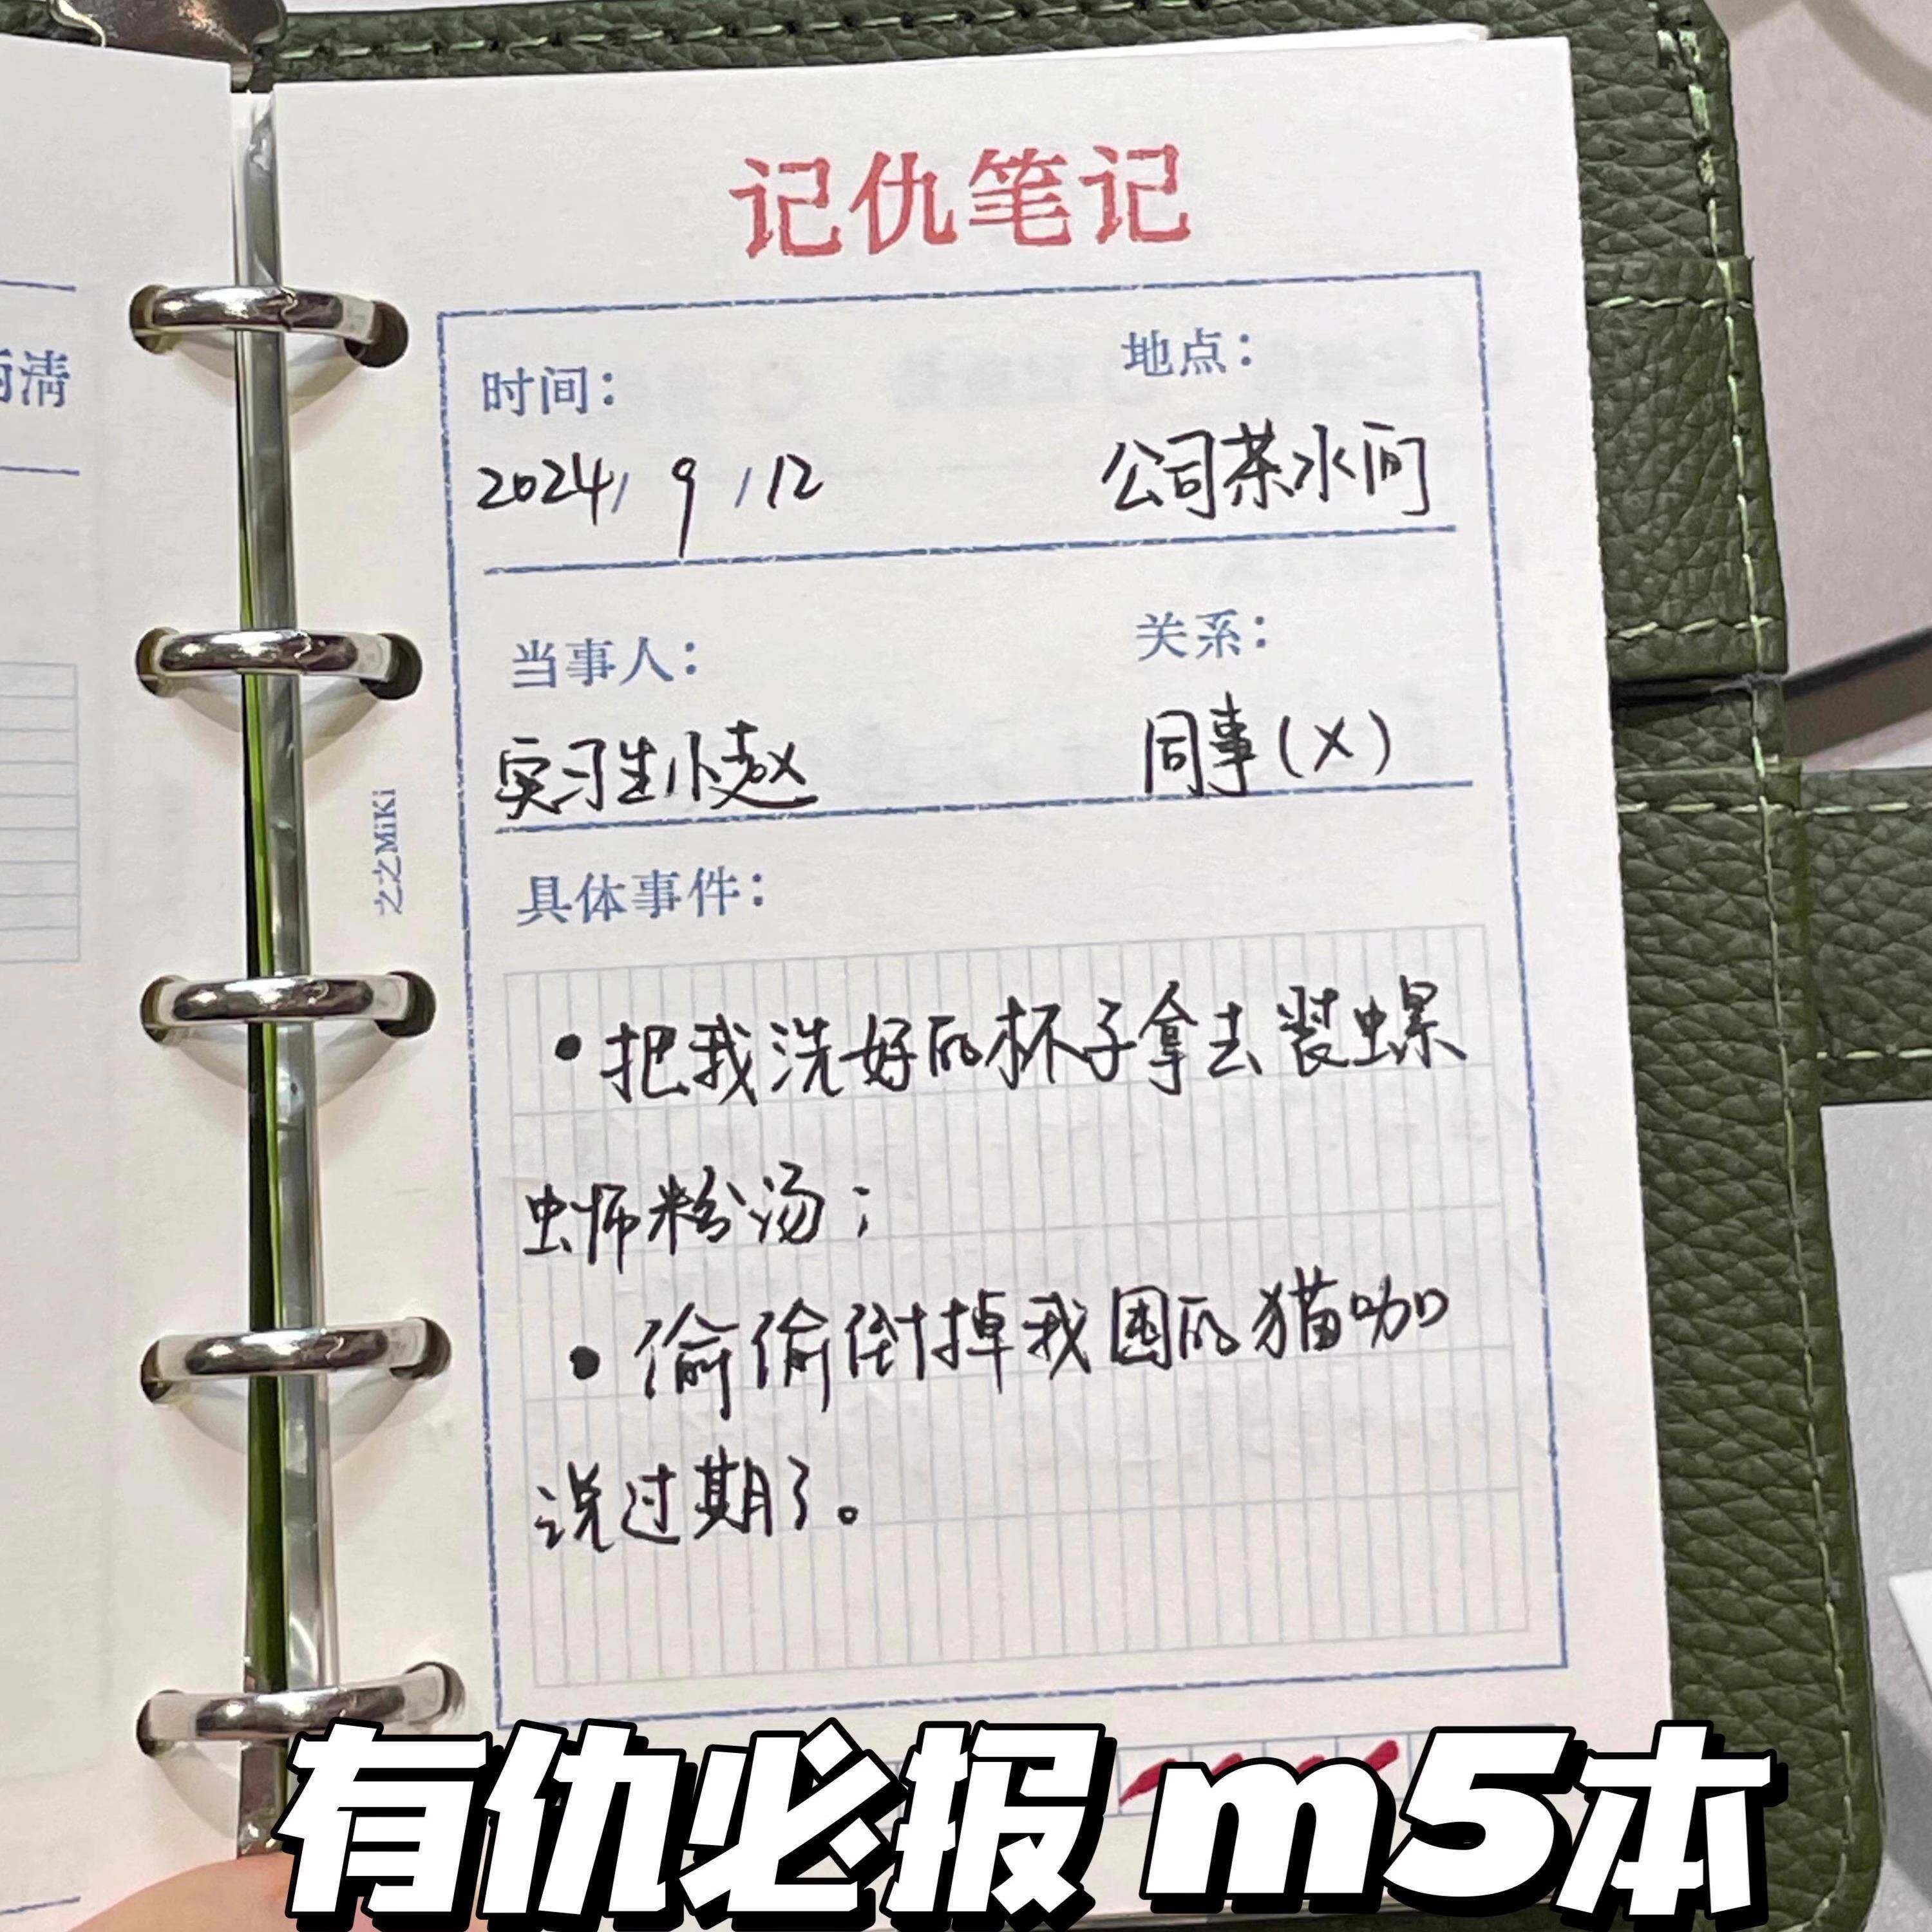 记仇笔记
时间：
地点：
2024/ 9 /12
公司茶水间
当事人：
关系：
实习生小赵
同事(X)
具体事件：
•把我洗好的杯子拿去装螺
蛳粉汤；
•偷偷倒掉我囤的猫咖
说过期了。
之之MiKi
清
有仇必报 m5本